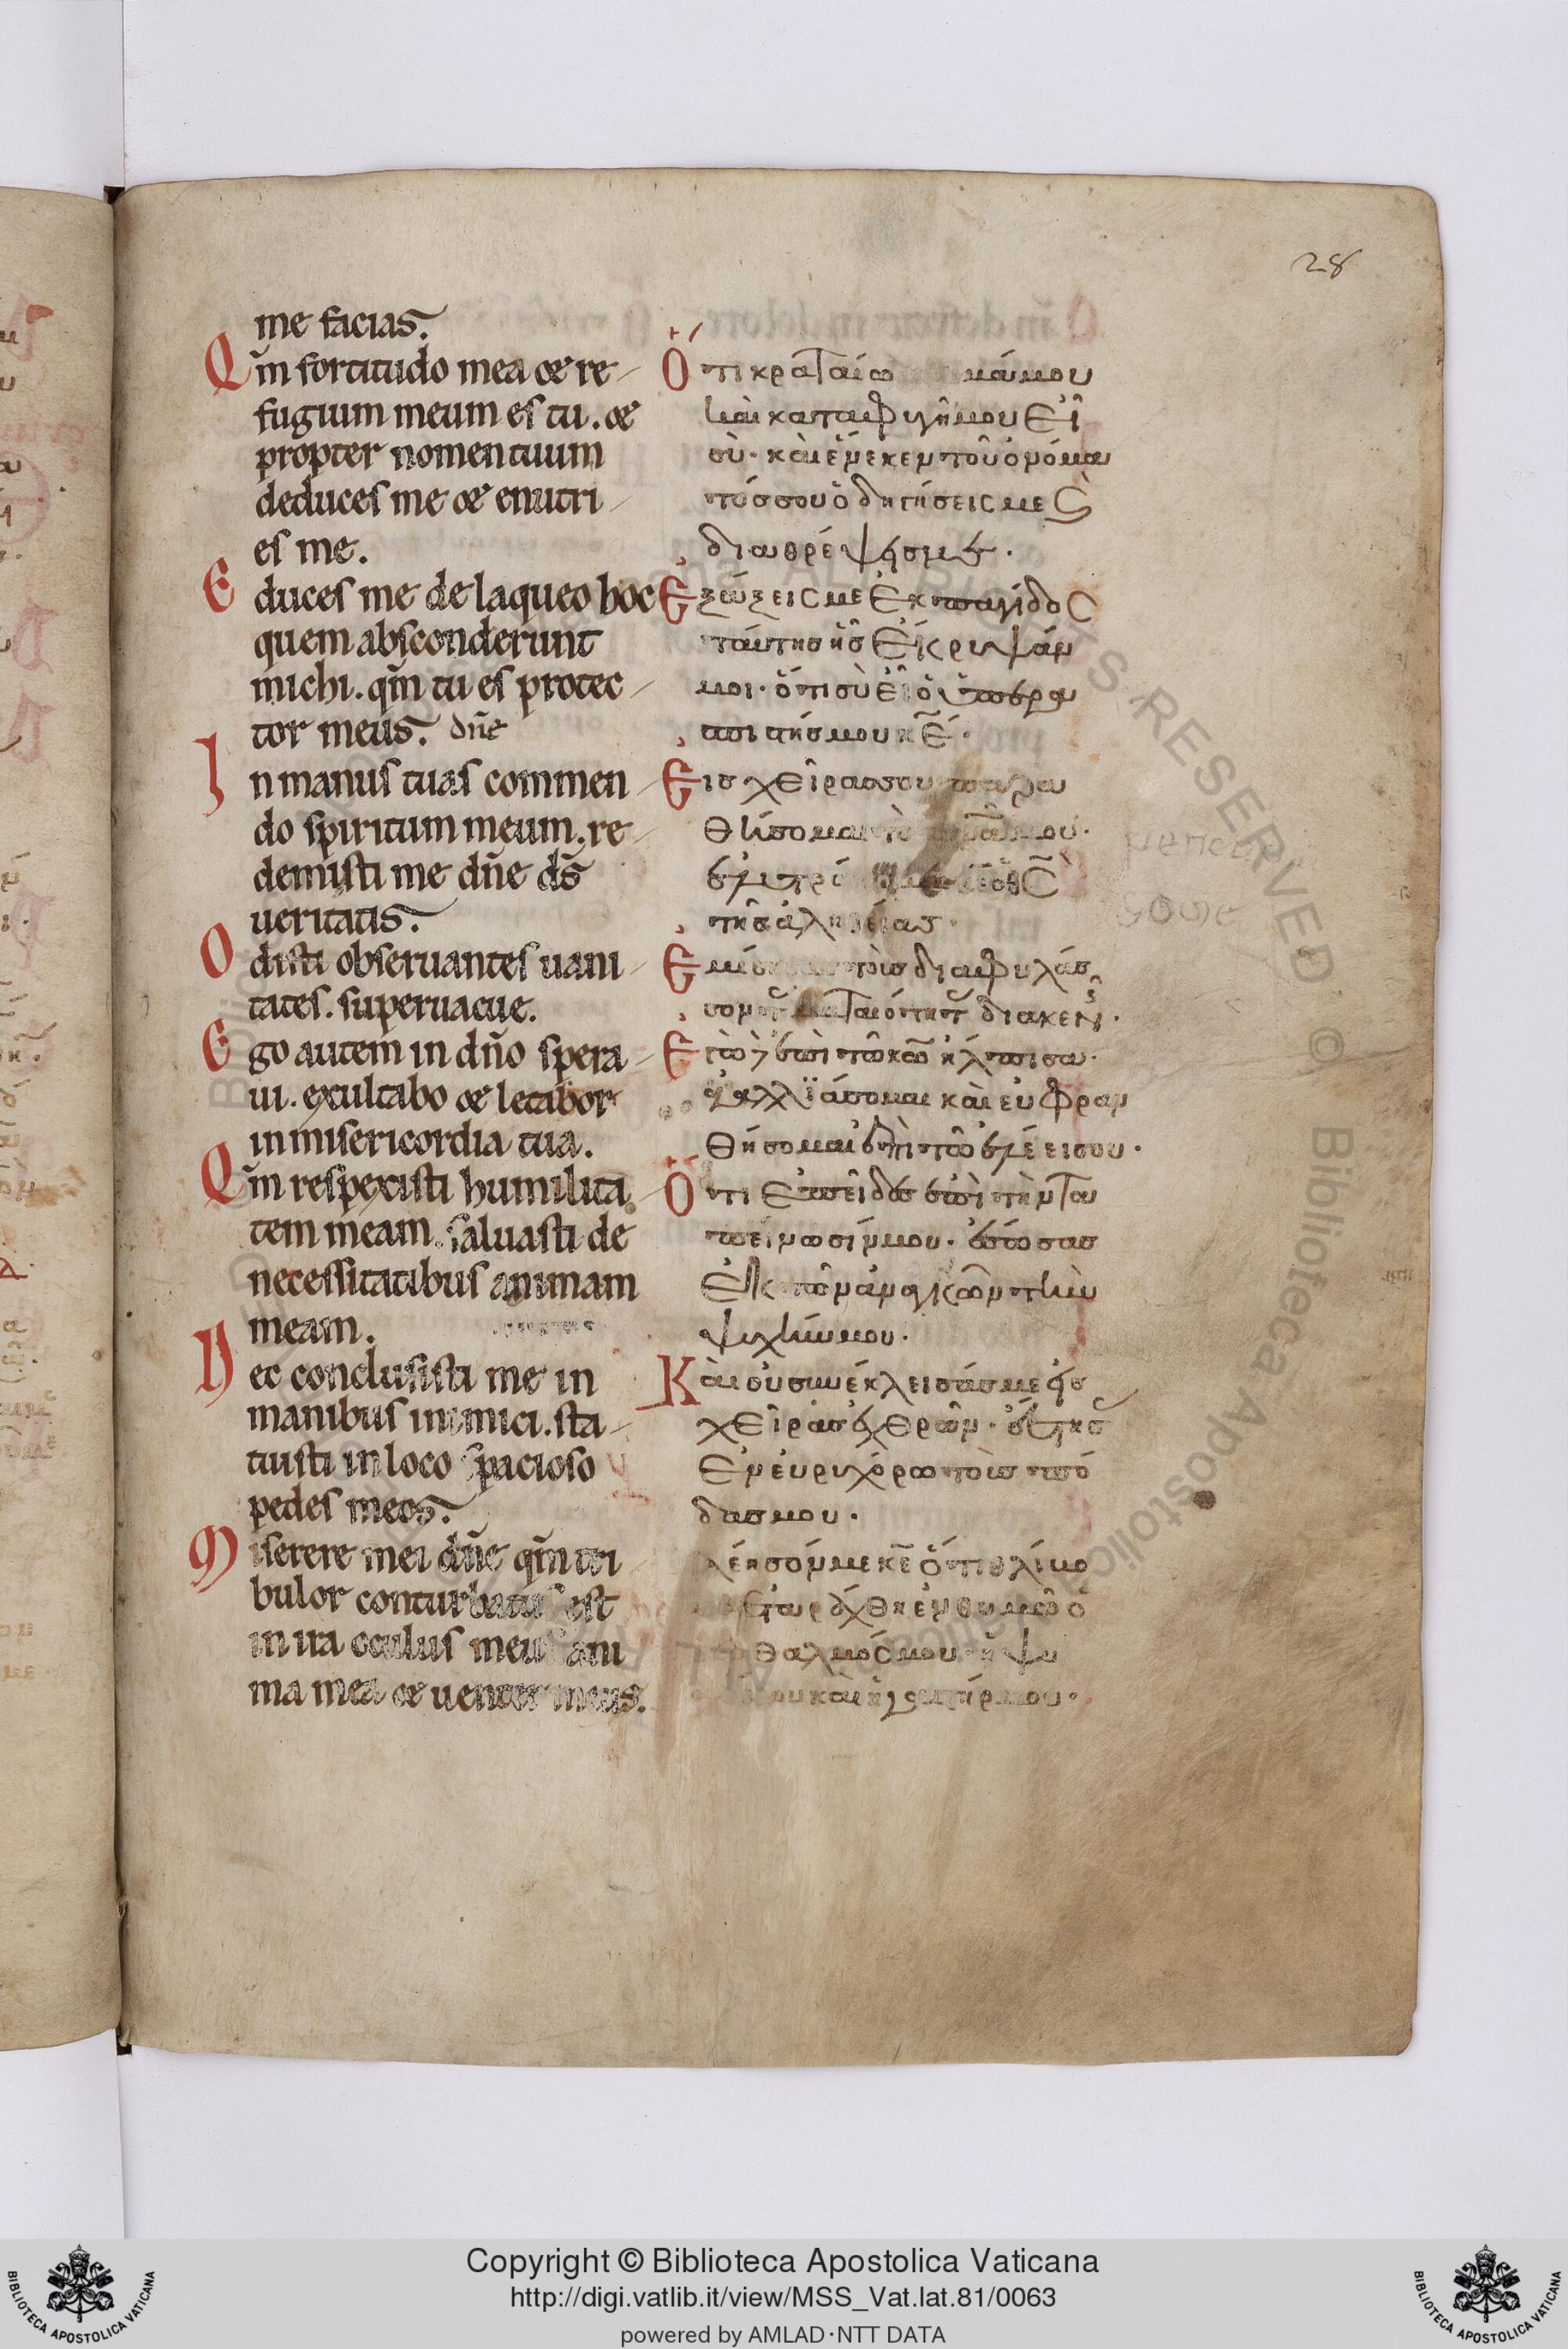 28
me facias.
Qm̄ fortitudo mea & re
fugium meum es tu. &
propter nomen tuum
deduces me & enutri
es me.
Educes me de laqueo hoc
quem absconderunt
michi. qm̄ tu es protec
tor meus. dn̄e
In manus tuas commen
do spiritum meum. re
demisti me dn̄e ds̄
ueritatis.
Odisti obseruantes uani
tates. superuacue.
Ego autem in dn̄o spera
ui. exultabo & letabor
in misericordia tua.
Qm̄ respexisti humilita
tem meam. saluasti de
necessitatibus animam
meam.
Nec conclusisti me in
manibus inimici. sta
tuisti in loco spacioso
pedes meos.
Miserere mei dn̄e qm̄ tri
bulor conturbatus est
in ira oculus meus ani
ma mea & uenter meus.
Ὅτι κραταίω μάμου
καὶ καταφυγήμου εἶ
σὺ· καὶ ἕνεκεν τοῦ ὀνόμα
τόσσου ὁδηγήσεις με ϗ
διαθρέψησμε.
Ἐξώξεις με ἐκ παγίδος
ταύτησ ἧσ ἔκρυψάν
μοι· ὅτι σὺ εἶ ὁ ὑπερα
σπιστήσμου κ̄ε̄.
Εἰσ χεῖρασσου παρα
θήσομαι τὸ πν̄ᾱμου·
τῆσ ἀληθείασ·
τοὺσ διαφυλάσ
σοντ ματαιότητ διακεν.
Ἐγὼ δὲ ἐπὶ τῶ κ̄ω̄ ἤλπισα·
ἀγαλλιάσομαι καὶ εὐφραν
θήσομαι ἐπὶ τῶ ἐλέεισου·
Ὅτι ἐπεῖδεσ ἐπὶ τὴν τα
πείνωσίνμου· ἔσωσασ
ἐκ τῶν ἀναγκῶν τὴν
ψυχήνμου·
Καὶ οὐ συνέκλεισάσμε εἰσ
χεῖρασ ἐχθρῶν· ἔστησ
ἐν εὐρυχόρω τοὺσ πό
δασμου·
λέησόνμε κ̄ε̄ ὅτι θλίβο
ἐταράχθη ἐν θυμῶ ὁ
θαλμόςμου ἡ ψυ
μου καὶ ἡ γαστήρμου·
Copyright © Biblioteca Apostolica Vaticana
http://digi.vatlib.it/view/MSS_Vat.lat.81/0063
powered by AMLAD·NTT DATA